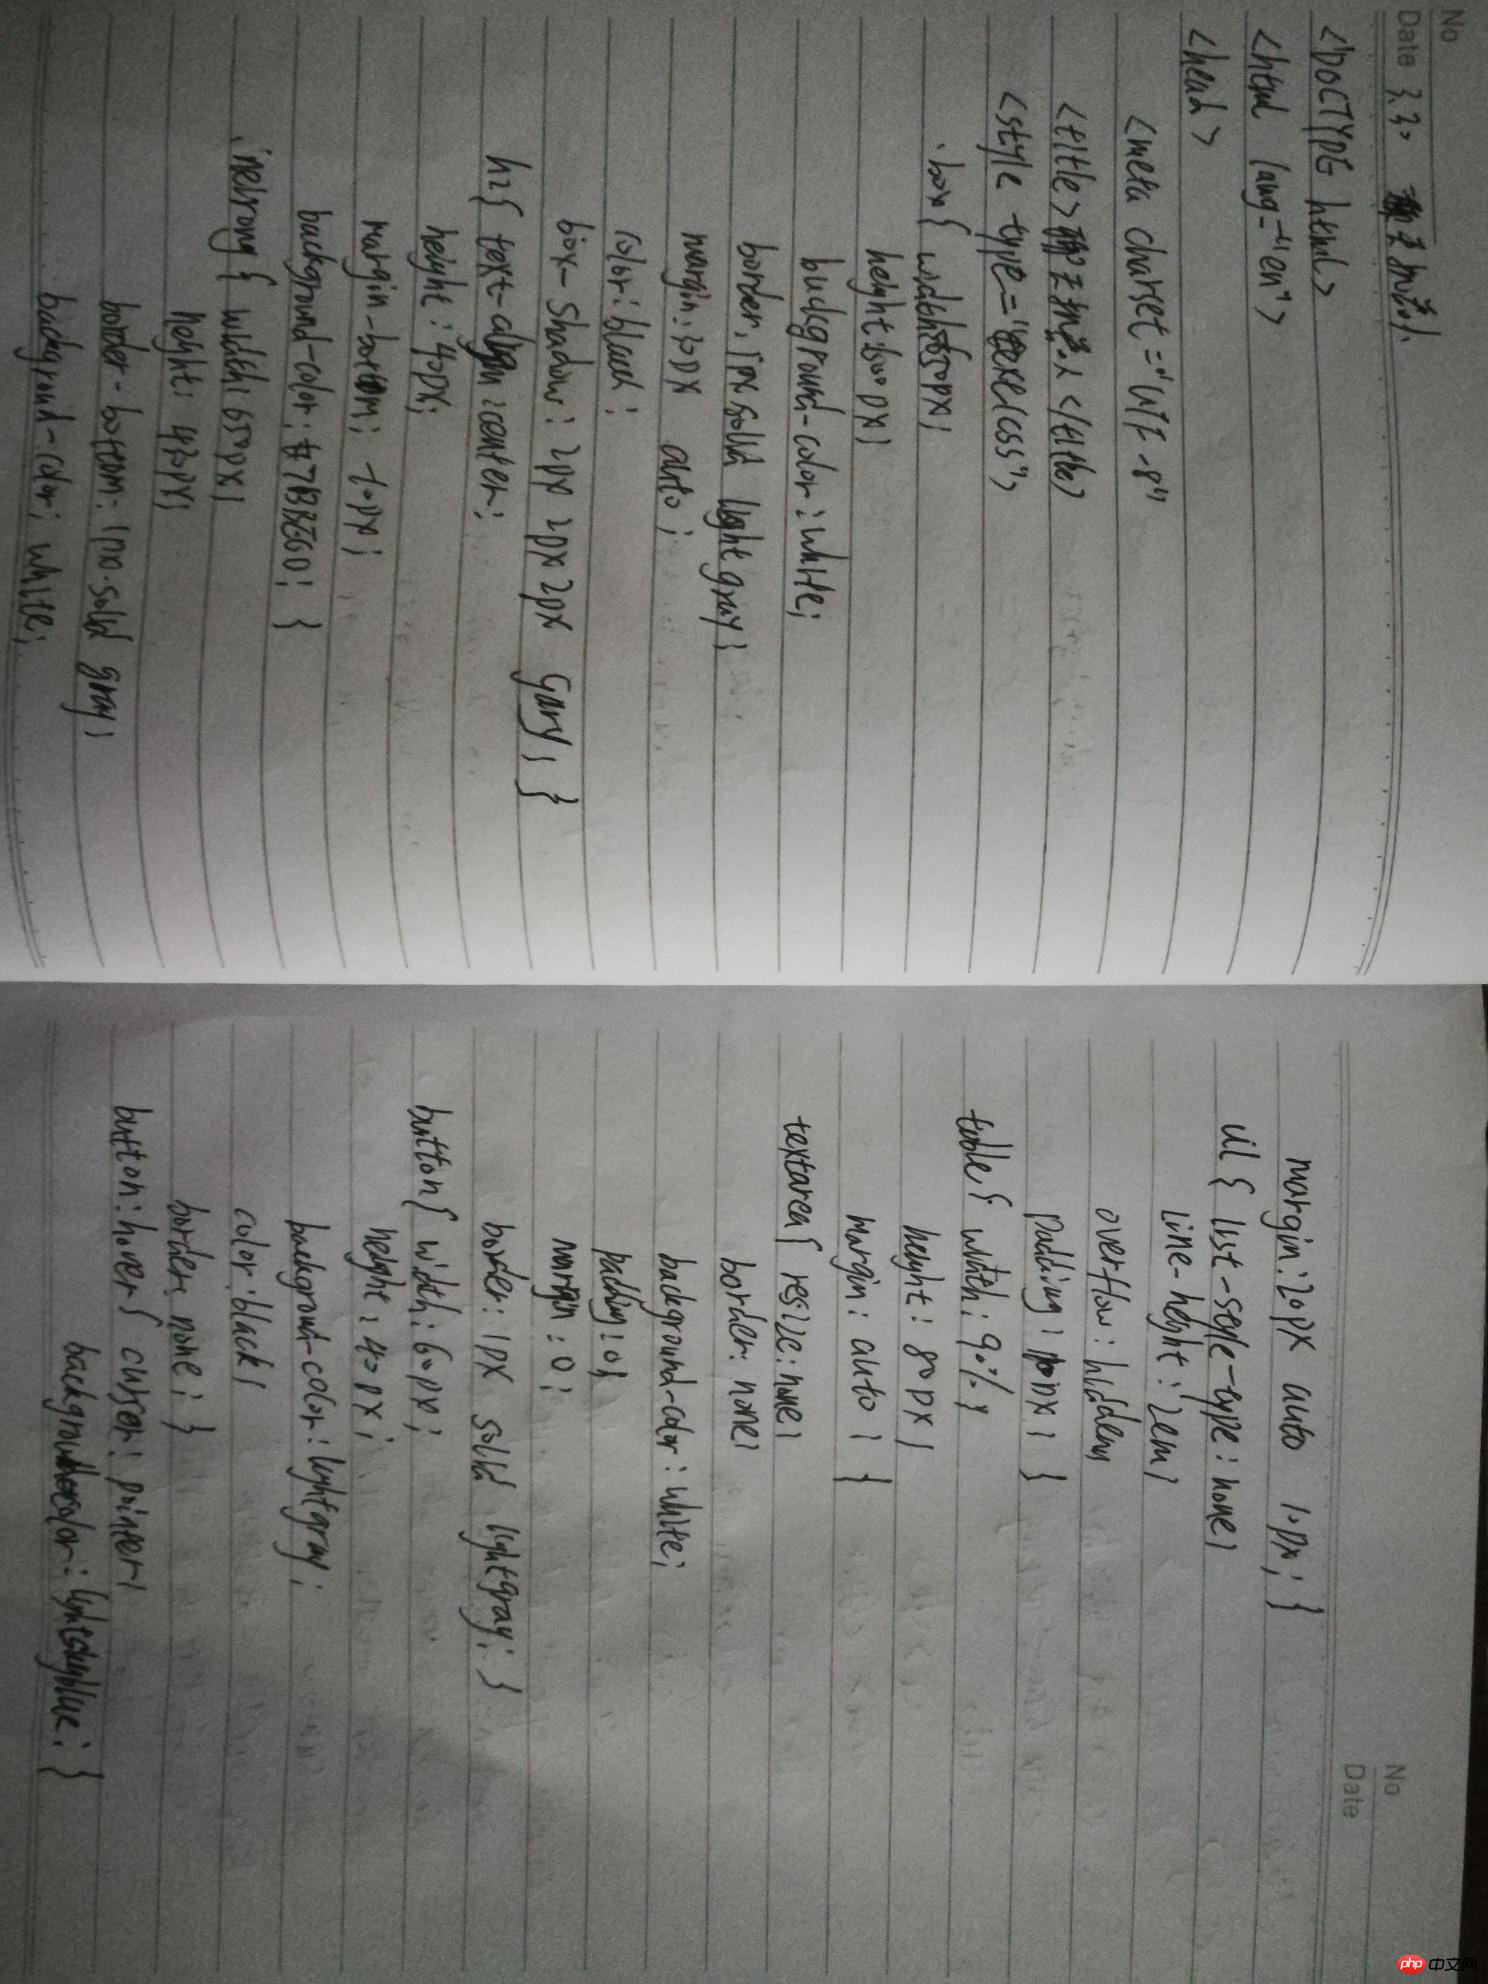 No
Date 3.30
<DOCTYPE html>
<html lang="en">
<head>
<meta charset="UTF-8"
<title> </title>
<style type="texe/css">
.box{ width:650px;
height:600px;
background-color:white;
border:1px solid lightgray;
margin:30px auto;
color:black;
box-shadow: 2px 2px 2px gary; }
h2{ text-align:center;
height:40px;
margin-bottom: -20px;
background-color: #7BBEG0; }
width:650px;
height: 420px;
border-bottom: 1px solid gray;
background-color: white;
No
Date
margin:20px auto 10px; }
ul{ list-seyle-type:none;
line-height:2em;
overflow: hidden;
padding: 10px; }
table{ width:90%;
height: 80px;
margin: auto; }
textarea{ resize:none;
border: none;
background-color:white;
padding:0;
margin:0;
border: 1px solid lightgray; }
button{ width:60px;
height:40px;
background-color:lightgray;
color:black;
border: none; }
button:hover{ cursor: pointer;
lightskyblue; }
php 中文网